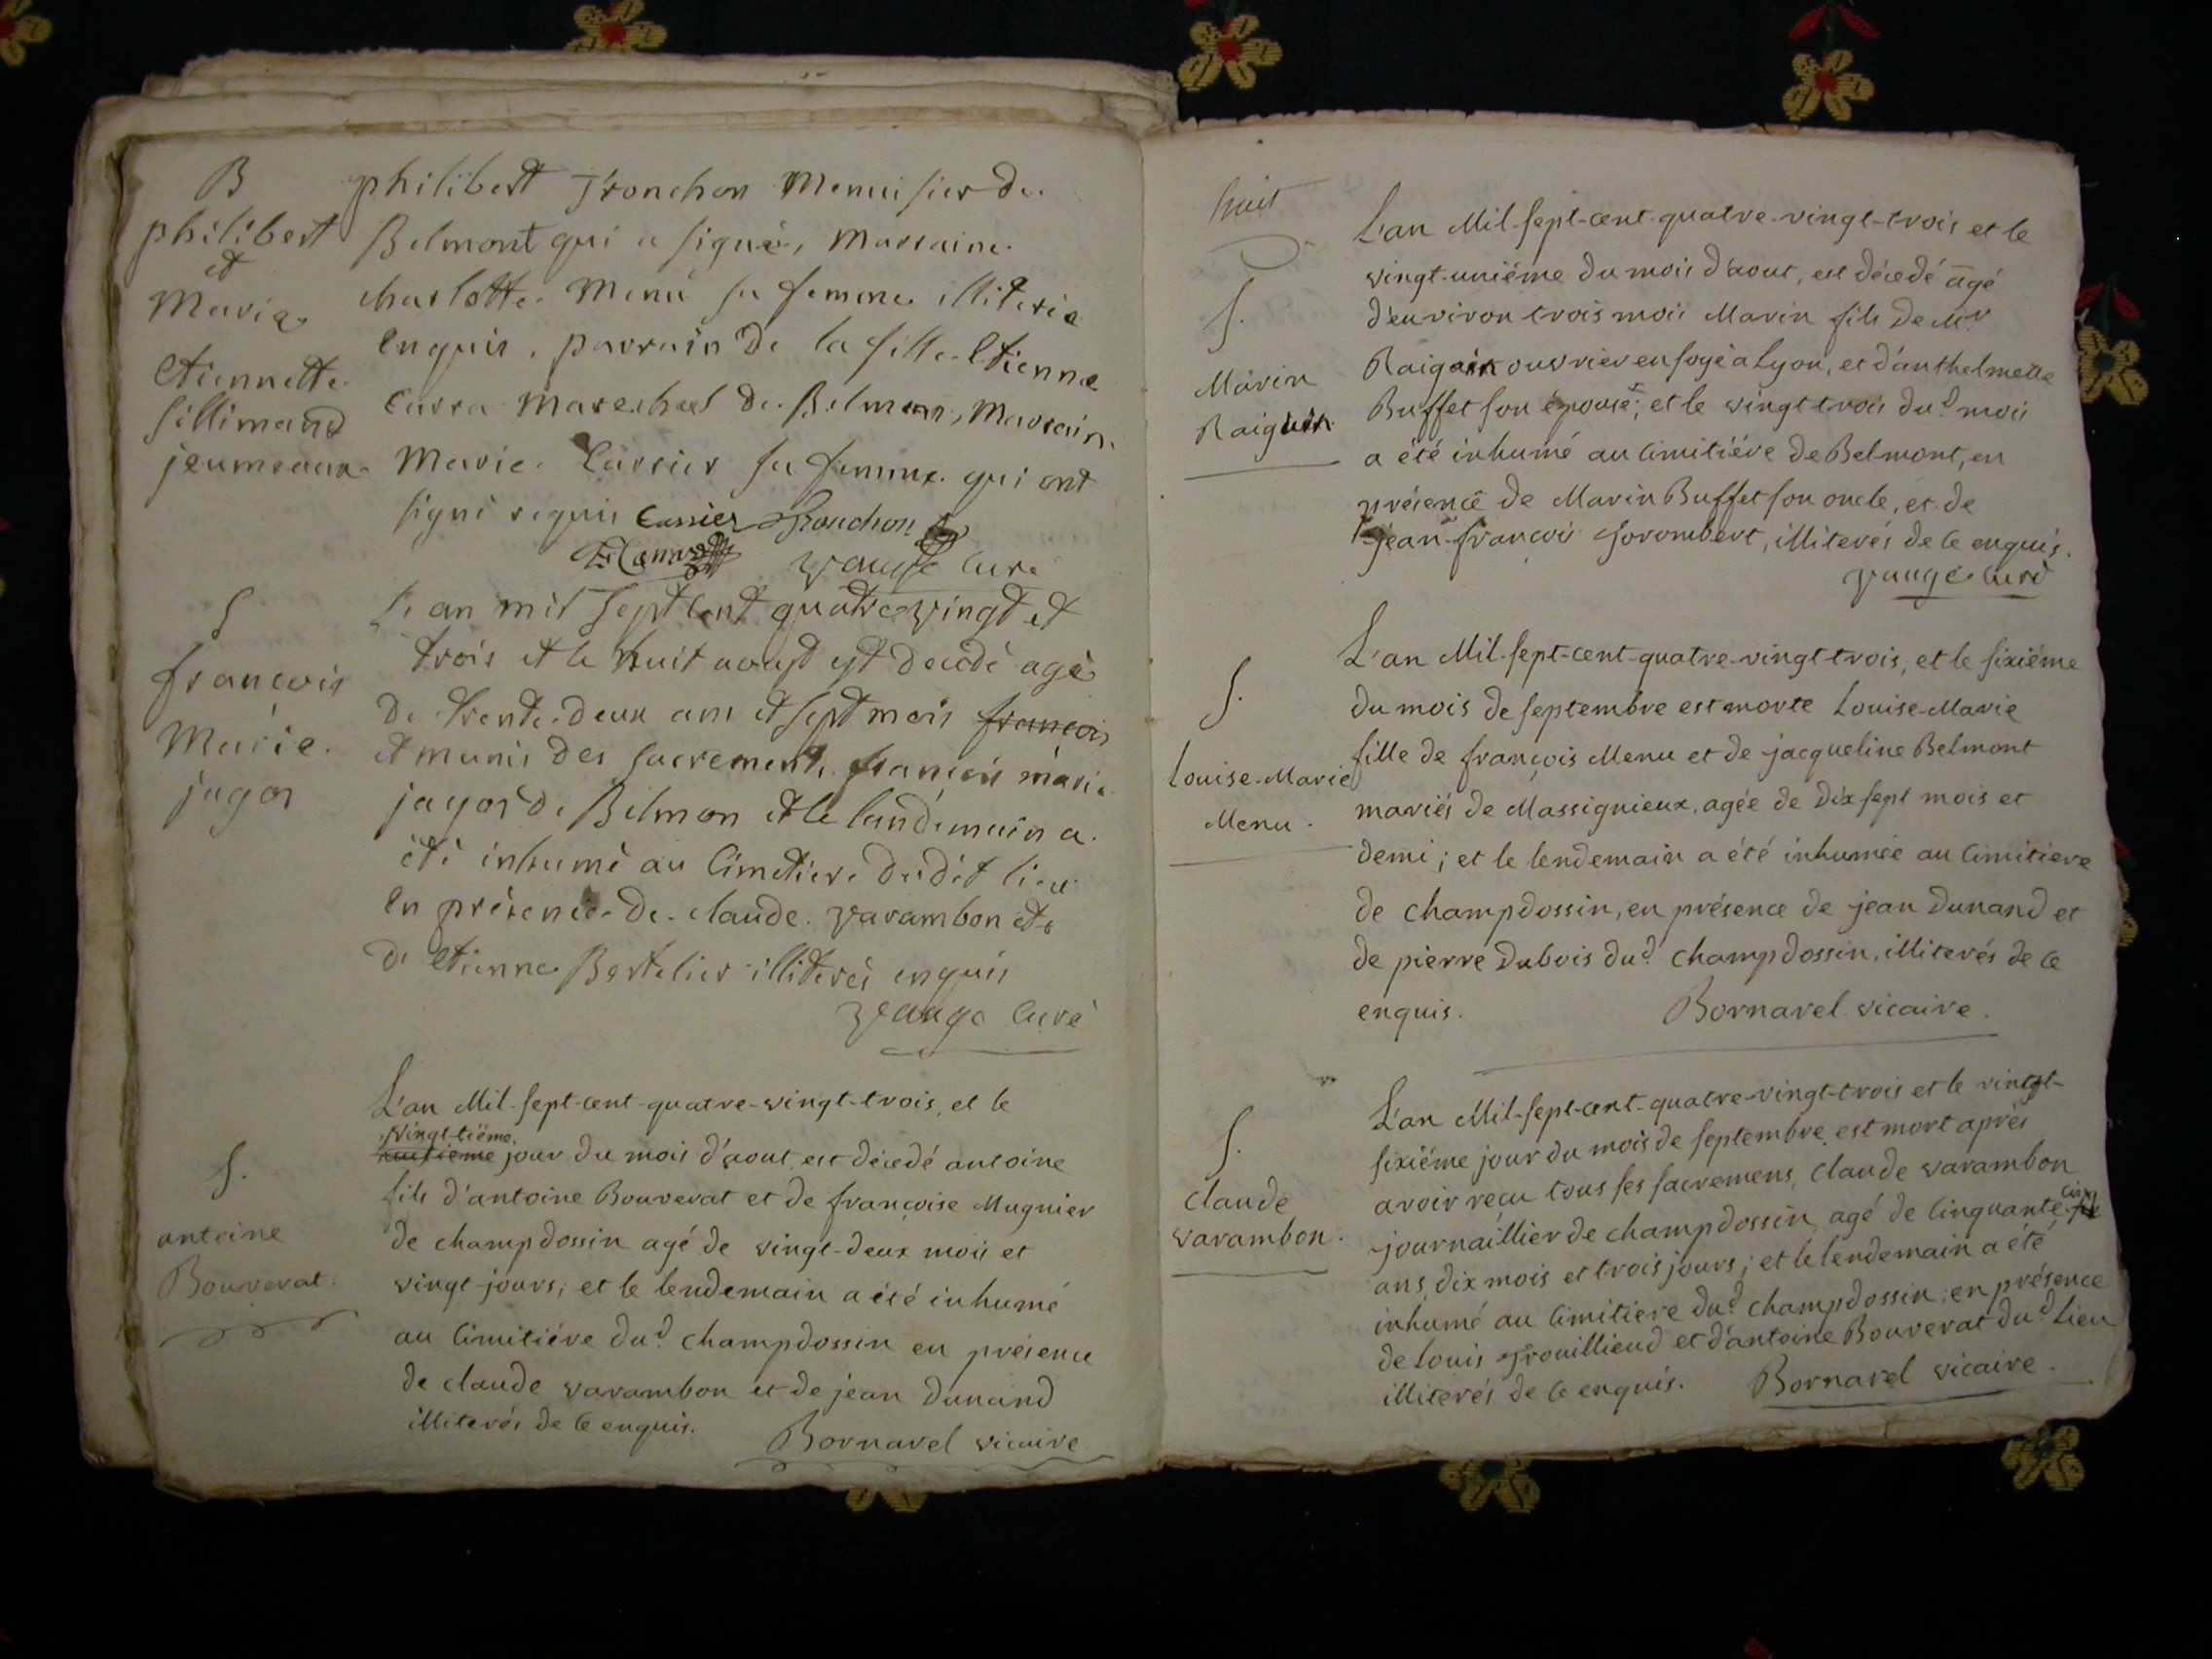 B
philibert
et
Marie
Etiennette
sillimand
jeumeaux
philibert Tronchon Menuisier de
Belmont qui a signé, Marraine
charlotte Menu sa femme illiterée
enquis, parrain de la fille Etienne
Carra Marechal de Belmon, Marrain
Marie Carrier sa femme qui ont
signé requis Carrier Tronchon
E Carra Vauge Curé
S
francois
Marie
jagos
L'an mil sept cent quatre vingt et
trois et le huit aoust est decédé agé
de trente deux ans et sept mois francois
et munis des sacrements françois marie
jagos de Belmon et le landemain a
été inhumé au Cimetiere dudit lieu
en présence de claude varambon et
de Etienne Bertelier illiterés enquis
Vauge Curé
S.
antoine
Bouverat
L'an Mil-sept-cent-quatre-vingt-trois, et le
vingt-tiéme
huitieme jour du mois d'aout, est décedé antoine
fils d'antoine Bouverat et de françoise Mugnier
de champdossin agé de vingt-deux mois et
vingt jours; et le lendemain a été inhumé
au Cimitiére dud. champdossin en présence
de claude varambon et de jean Dunand
illiterés de ce enquis.
Bornarel vicaire
huit
S.
Marin
Raiguin
L'an Mil-sept-cent-quatre-vingt-trois et le
vingt-uniéme du mois d'aout, est décedé agé
d'environ trois mois Marin fils de Mr
Raigain ouvrier en soye a Lyon, et d'anthelmette
Buffet son épouse; et le vingt trois dud. mois
a été inhumé au Cimitiére de Belmont, en
présence de Marin Buffet son oncle, et de
Jean-françois Jorombert, illiterés de ce enquis.
Vauge Curé
S.
Louise-Marie
Menu.
L'an Mil-sept-cent-quatre-vingt-trois, et le sixiéme
du mois de septembre est morte Louise-Marie
fille de françois Menu et de jacqueline Belmont
mariés de Massignieux, agée de dix sept mois et
demi; et le lendemain a été inhumée au Cimitiere
de champdossin, en présence de jean Dunand et
de pierre Dubois dud. champdossin, illiterés de ce
enquis. Bornarel vicaire.
S.
Claude
varambon.
L'an Mil-sept-cent-quatre-vingt-trois et le vingt-
sixiéme jour du mois de septembre est mort après
avoir reçu tous ses sacremens, Claude varambon
cinq
journaillier de champdossin, agé de Cinquante
ans, dix mois et trois jours; et le lendemain a été
inhumé au Cimitiere dud. champdossin; en présence
de Louis Trouilliend et d'antoine Bouverat dud. Lieu
illiterés de ce enquis. Bornarel vicaire.